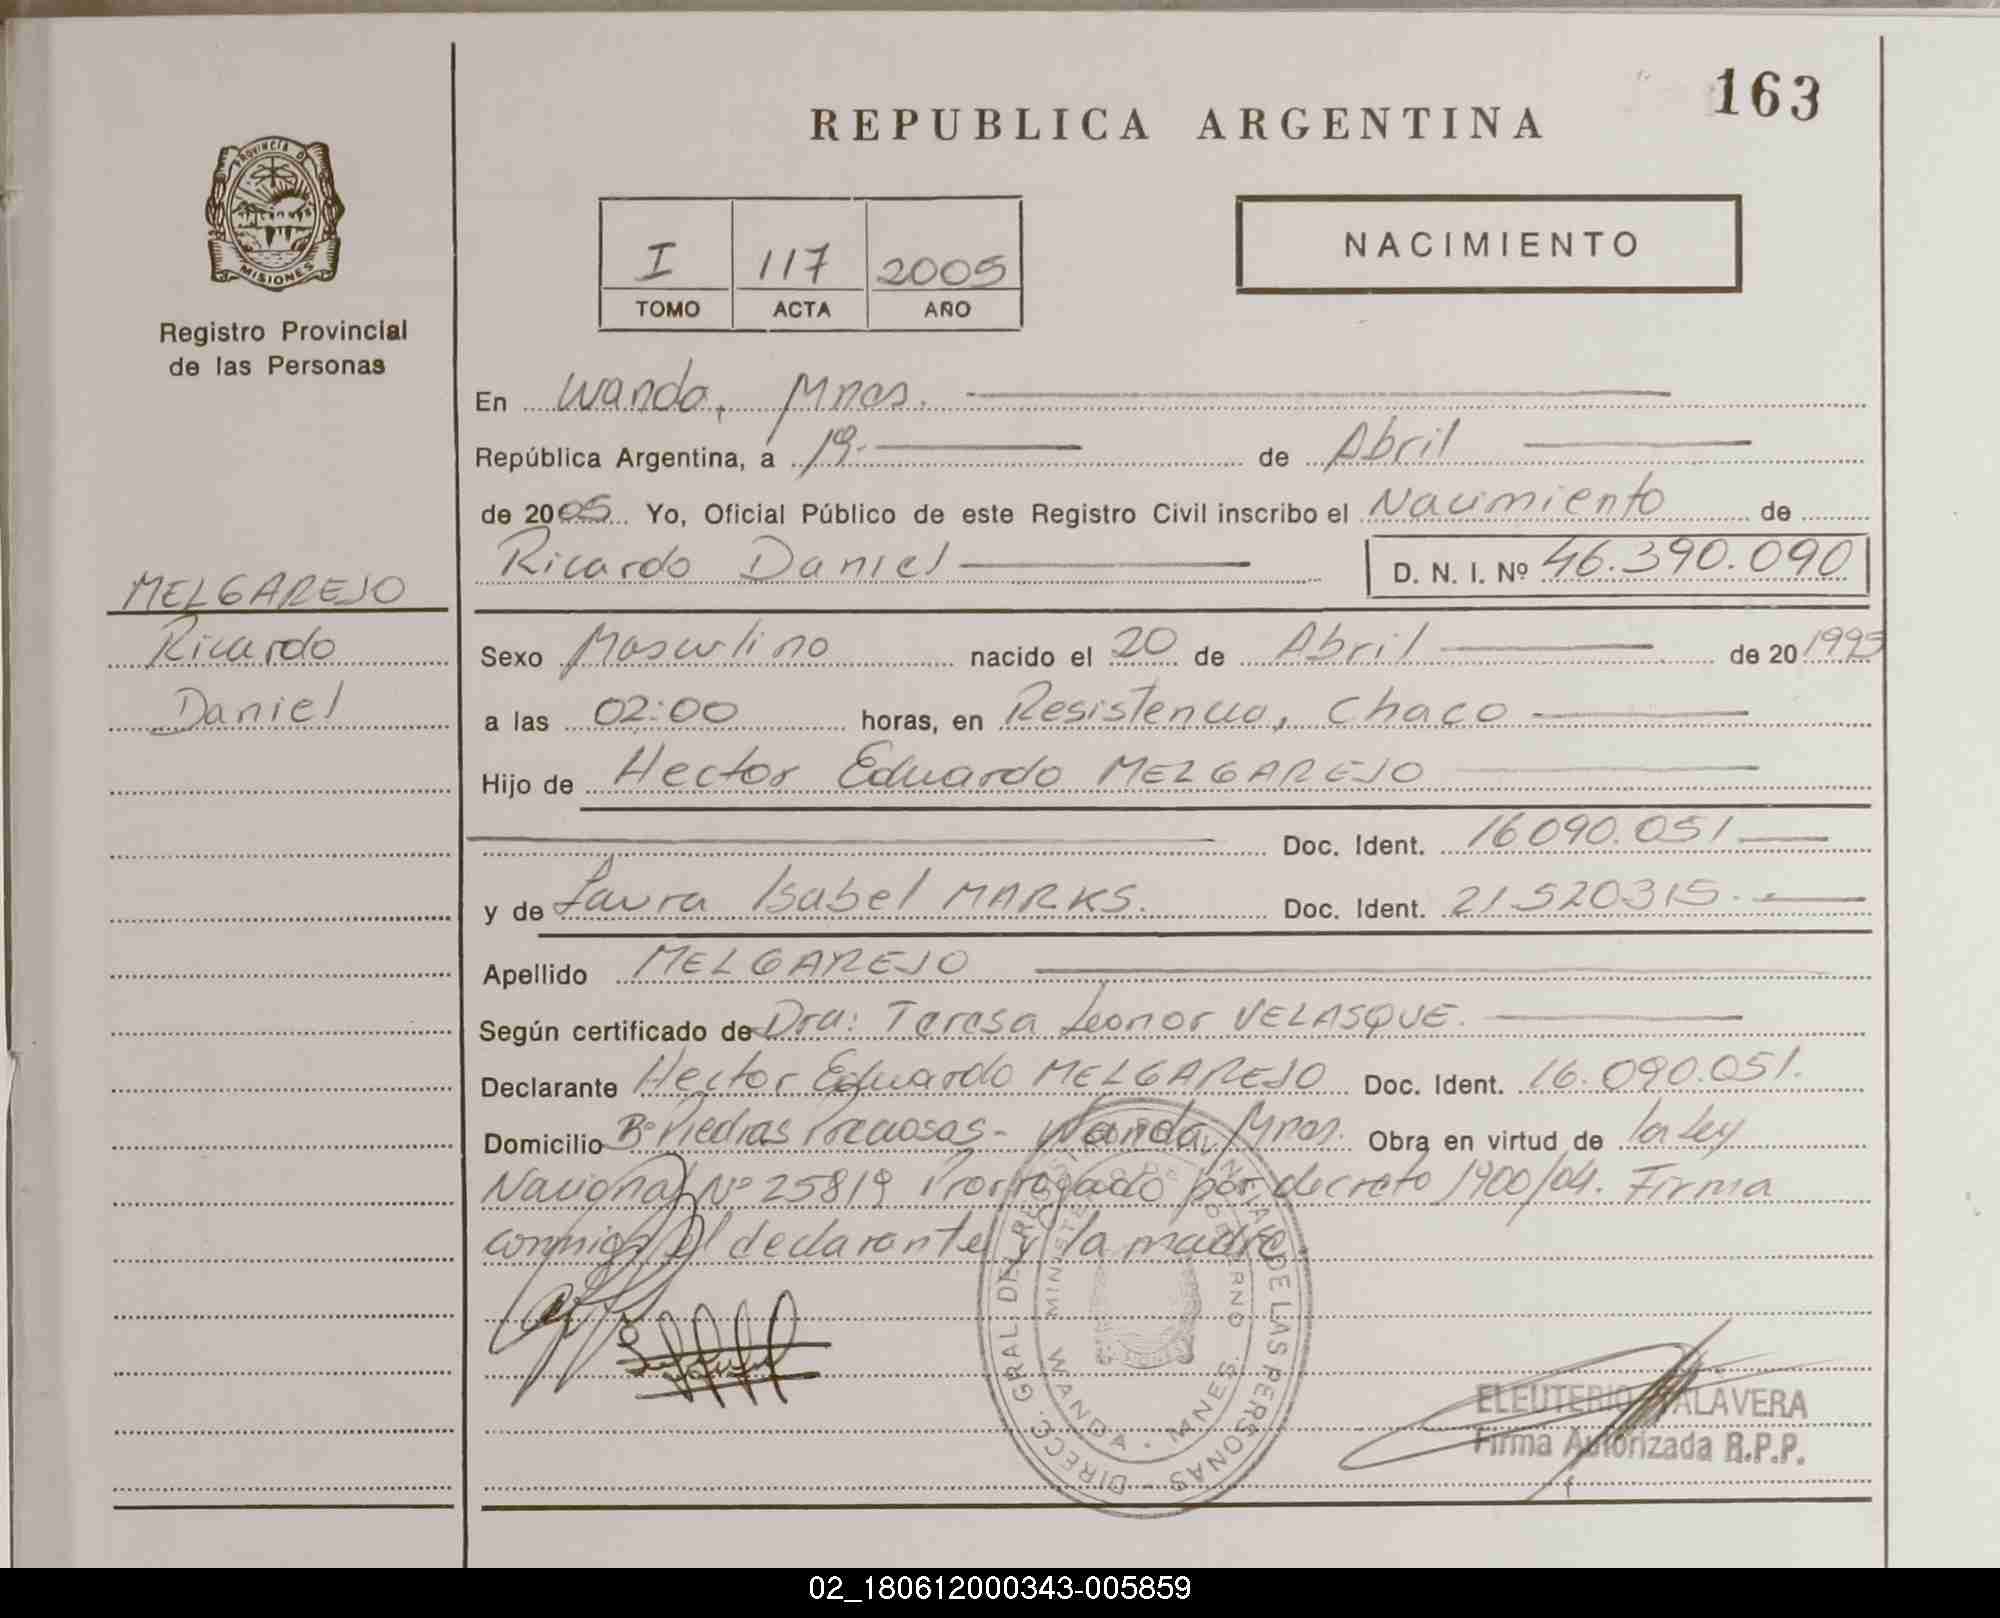 163
REPUBLICA ARGENTINA
PROVINCIA DE
MISIONES
Registro Provincial
de las Personas
I 117 2005
TOMO ACTA AÑO
NACIMIENTO
En Wanda, Mnes.
República Argentina, a 19 de Abril
de 2005 Yo, Oficial Público de este Registro Civil inscribo el Nacimiento de
Ricardo Daniel D. N. I. Nº 46.390.090
MELGAREJO
Ricardo
Daniel
Sexo Masculino nacido el 20 de Abril de 20 1995
a las 02:00 horas, en Resistencia, Chaco
Hijo de Hector Eduardo MELGAREJO
Doc. Ident. 16090.051
y de Laura Isabel MARKS. Doc. Ident. 21.520315.
Apellido MELGAREJO
Según certificado de Dra: Teresa Leonor VELASQUE.
Declarante Hector Eduardo MELGAREJO Doc. Ident. 16.090.051.
Domicilio Bº Piedras Preciosas - Wanda, Mnes. Obra en virtud de la Ley
Nacional Nº 25819 Prorrogado por decreto 1900/04. Firma
conmigo el declarante y la madre
DIRECC. GRAL. DEL REGISTRO PROVINCIAL DE LAS PERSONAS
MINISTERIO DE GOBIERNO
WANDA - MNES.
ELEUTERIO TALAVERA
Firma Autorizada R.P.P.
02_180612000343-005859